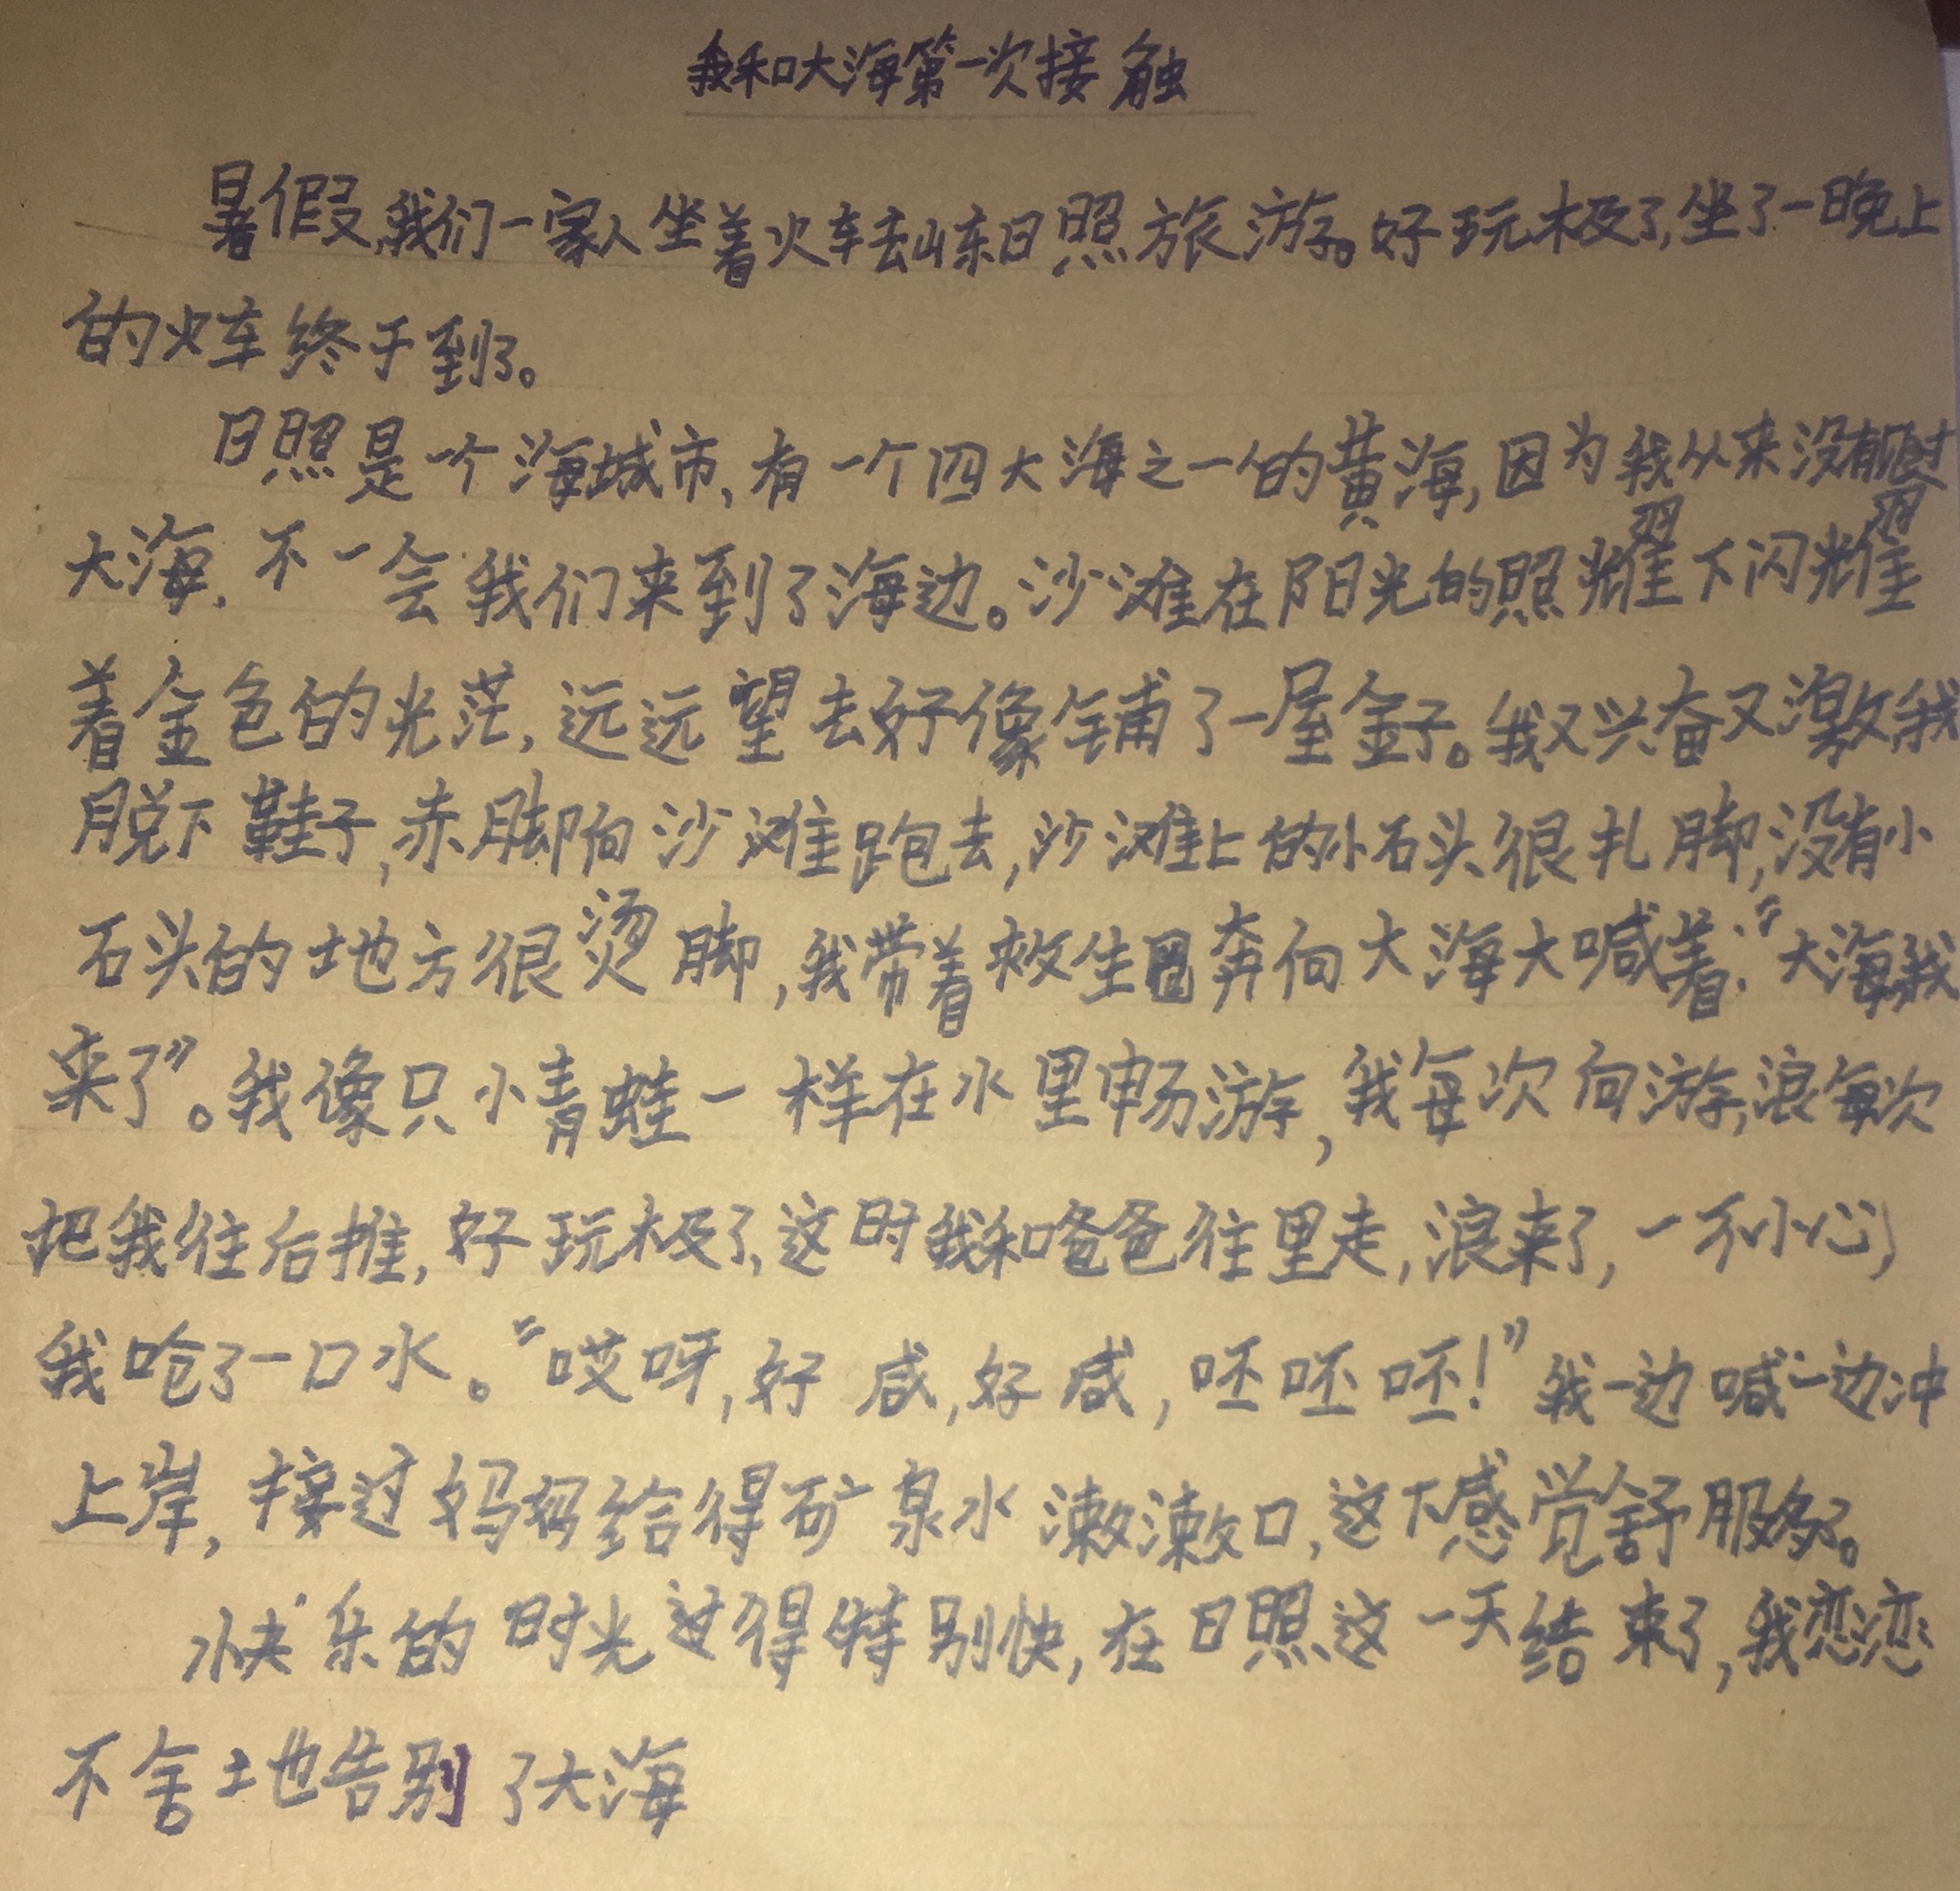 我和大海第一次接触
暑假,我们一家人坐着火车去山东日照旅游。好玩极了,坐了一晚上
的火车终于到了。
日照是一个海城市,有一个四大海之一的黄海,因为我从来没有
大海,不一会我们来到了海边。沙滩在阳光的照耀下闪耀
着金色的光茫,远远望去好像铺了一屋金子。我又兴奋又激我
脱下鞋子,赤脚向沙滩跑去,沙滩上的小石头很扎脚,没有小
石头的地方很烫脚,我带着救生圈奔向大海大喊着:“大海我
来了”。我像只小青蛙一样在水里畅游,我每次向游,浪每次
把我往后推,好玩极了,这时我和爸爸往里走,浪来了,一不小心,
我呛了一口水。“哎呀,好咸,好咸,呸呸呸!”我一边喊一边冲
上岸,接过妈妈给得矿泉水漱漱口,这下感觉舒服多了。
快乐的时光过得特别快,在日照这一天结束了,我恋恋
不舍地告别了大海